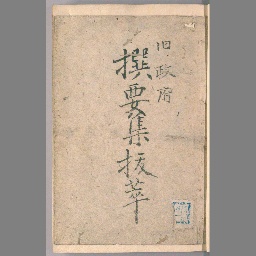 旧政府
撰要集抜萃